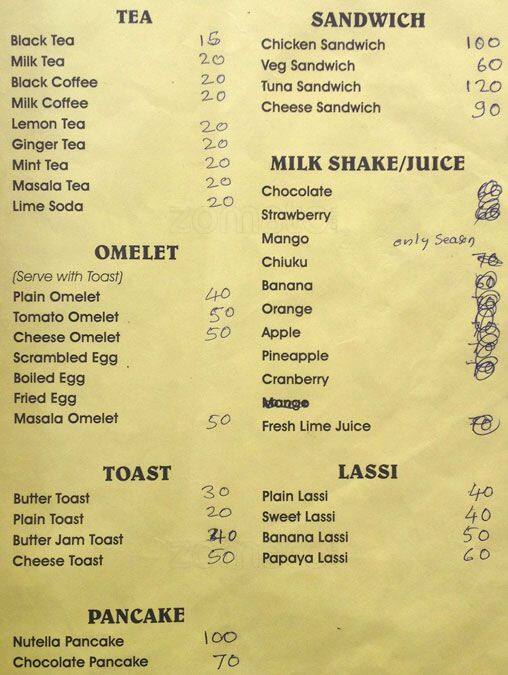 TEA
Black Tea 15
Milk Tea 20
Black Coffee 20
Milk Coffee 20
Lemon Tea 20
Ginger Tea 20
Mint Tea 20
Masala Tea 20
Lime Soda 20
OMELET
(Serve with Toast)
Plain Omelet 40
Tomato Omelet 50
Cheese Omelet 50
Scrambled Egg
Boiled Egg
Fried Egg
Masala Omelet 50
TOAST
Butter Toast 30
Plain Toast 20
Butter Jam Toast 40
Cheese Toast 50
PANCAKE
Nutella Pancake 100
Chocolate Pancake 70
SANDWICH
Chicken Sandwich 100
Veg Sandwich 60
Tuna Sandwich 120
Cheese Sandwich 90
MILK SHAKE/JUICE
Chocolate
Strawberry
Mango only Season
Chiuku
Banana
Orange
Apple
Pineapple
Cranberry
Fresh Lime Juice
LASSI
Plain Lassi 40
Sweet Lassi 40
Banana Lassi 50
Papaya Lassi 60